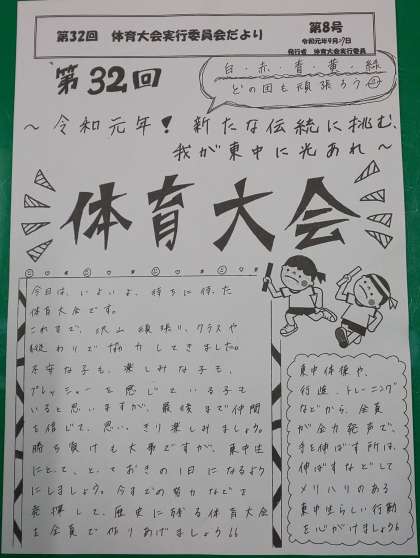 第32回 体育大会実行委員会だより
第8号
令和元年9月27日
発行者 体育大会実行委員
第32回
白・赤・青・黄・緑
どの団も頑張ろう
～令和元年！新たな伝統に挑む、
我が東中に光あれ～
体育大会
今日は、いよいよ、待ちに待った
体育大会です。
これまで、沢山頑張り、クラスや
縦わりで協力してきました。
不安な子も、楽しみな子も、
プレッシャーを感じている子も
いると思いますが、最後まで仲間
を信じて、思いっきり楽しみましょう。
勝ち負けも大事ですが、東中生
にとって、とっておきの1日になるように
にしましょう。今までの努力などを
発揮して、歴史に残る体育大会
を全員で作りあげましょう!!
東中体操や、
行進、トレーニング
などから、全員
が全力発声で、
手を伸ばす所は、
伸ばすなどして
メリハリのある
東中生らしい行動
を心がけましょう!!